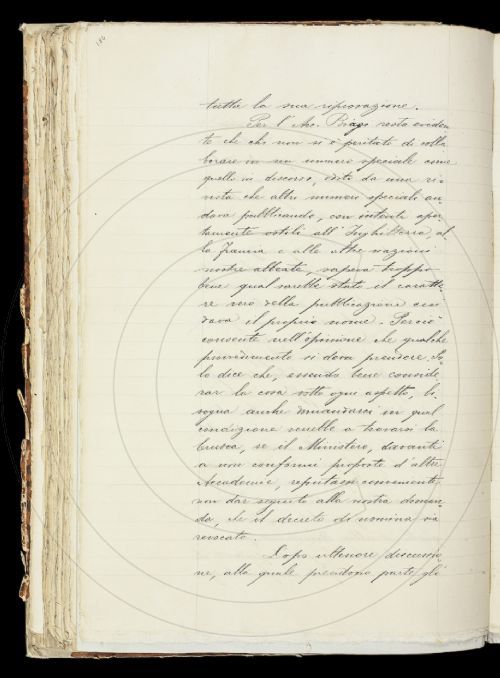 186
tutta la sua riprovazione.
Per l'Acc. Biagi resta eviden
te che chi non si è peritato di colla
borare in un numero speciale come
quello in discorso, edito da una ri
vista che altri numeri speciali an-
dava pubblicando, con intenti aper
tamente ostili all'Inghilterra, al
la Francia e alle altre nazioni
nostre alleate, sapeva troppo
bene qual sarebbe stato il caratte-
re vero della pubblicazione cui
dava il proprio nome. Perciò
consente nell'opinione che qualche
provvedimento si deva prendere. So
lo dice che, essendo bene conside
rar la cosa sotto ogni aspetto, bi-
sogna anche domandarci in qual
condizione verrebbe a trovarsi la
Crusca, se il Ministero, davanti
a non conformi proposte d'altre
Accademie, reputasse conveniente
non dar seguito alla nostra doman-
da, che il decreto di nomina sia
revocato.
Dopo ulteriore discussio
ne, alla quale prendono parte gli